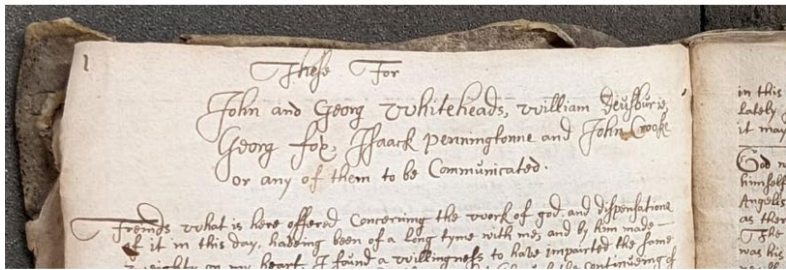 1
These For
John and Georg Whiteheads, William Deusburie,
Georg fox, Isaack Penningtonne and John Crooke
or any of them to be Communicated.
Freinds what is here offered Concerning the work of god, and dispensations
of it in this day, having been of a long tyme with me, and by him made
weighty on my heart, I found a willingness to have imparted the same
the continueing of
in this
lately
it may
God
himself
Angells
as ther
The
was his